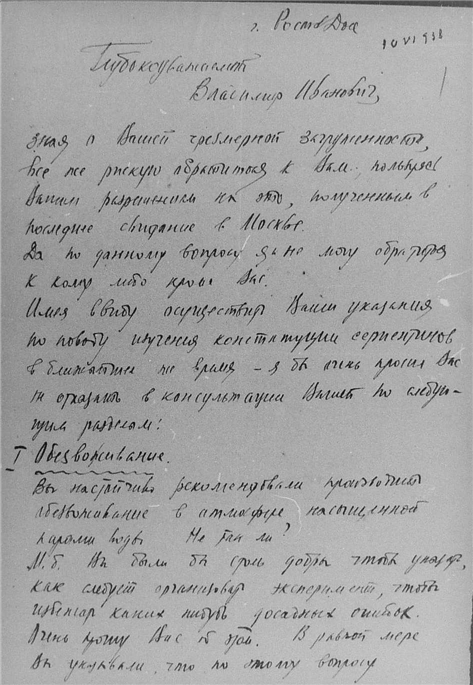 г. Ростов Дон
10 VI 938
Глубокоуважаемый
Владимир Иванович,
зная о Вашей чрезмерной загруженности,
все же рискую обратиться к Вам, пользуясь
Вашим разрешением на это, полученным в
последнее свидание в Москве.
Да по данному вопросу я и не могу обратиться
к кому либо кроме Вас.
Имея ввиду осуществить Ваши указания
по поводу изучения конституции серпентинов
в ближайшее же время – я бы очень просил Вас
не отказать в консультации Вашей по следую-
щим разделам:
I Обезвоживание.
Вы настойчиво рекомендовали производить
обезвоживание в атмосфере насыщенной
парами воды. Не так ли?
М.б. Вы были бы столь добры чтобы указать,
как следует организовать эксперимент, чтобы
избегать каких нибудь досадных ошибок.
Очень прошу Вас об этом. В равной мере
Вы указывали, что по этому вопросу